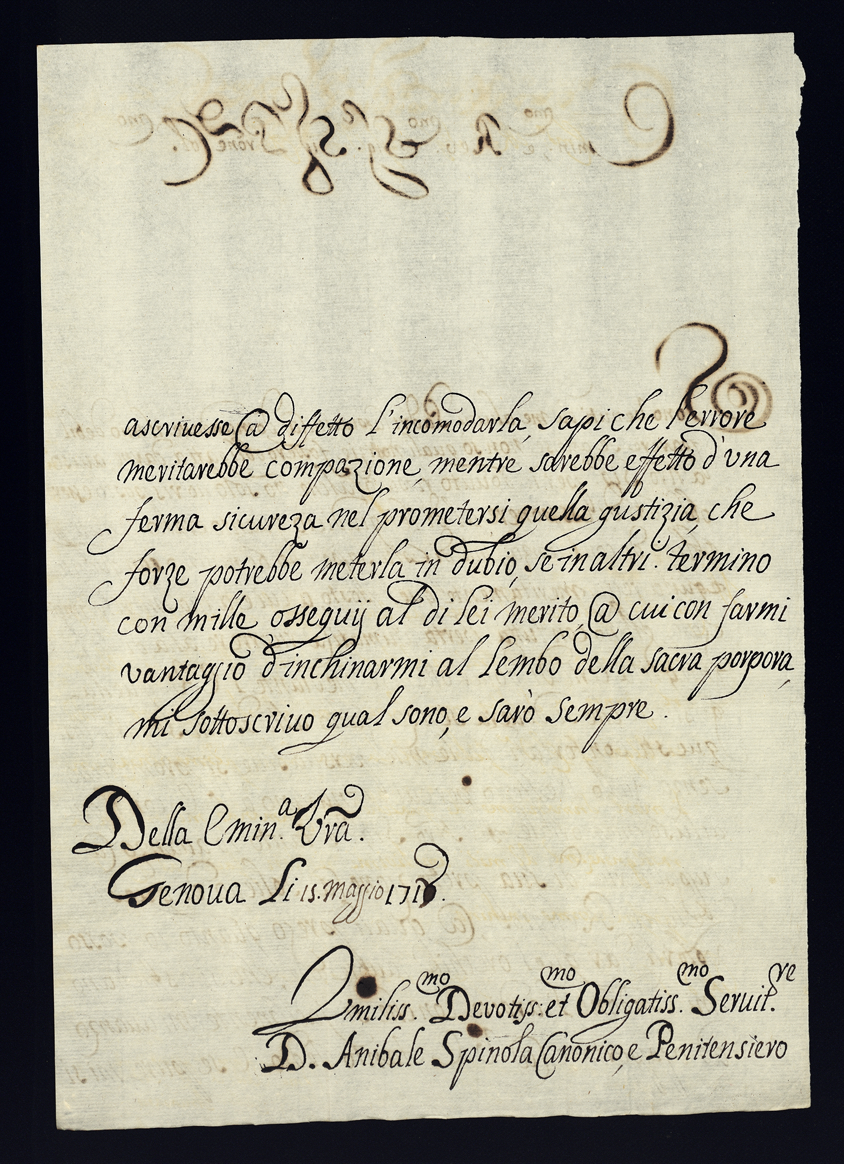 ascrivesse @ diffetto l'incomodarla, sapi che l'errore
meritarebbe compazione, mentre sarebbe effetto d'una
ferma sicureza nel prometersi quella gustizia, che
forze potrebbe meterla in dubio, se in altri. termino
con mille ossequij al di lei merito, @ cui con farmi
vantaggio d'inchinarmi al Lembo della sacra porpora,
mi sottoscrivo qual sono, e sarò sempre.
Della Emin.a Vra.
Genova Li 15. Maggio
Vmiliss.mo Devotiss:mo et Obligatiss.mo Servit.re
D. Anibale Spinola Canonico, e Penitensiero